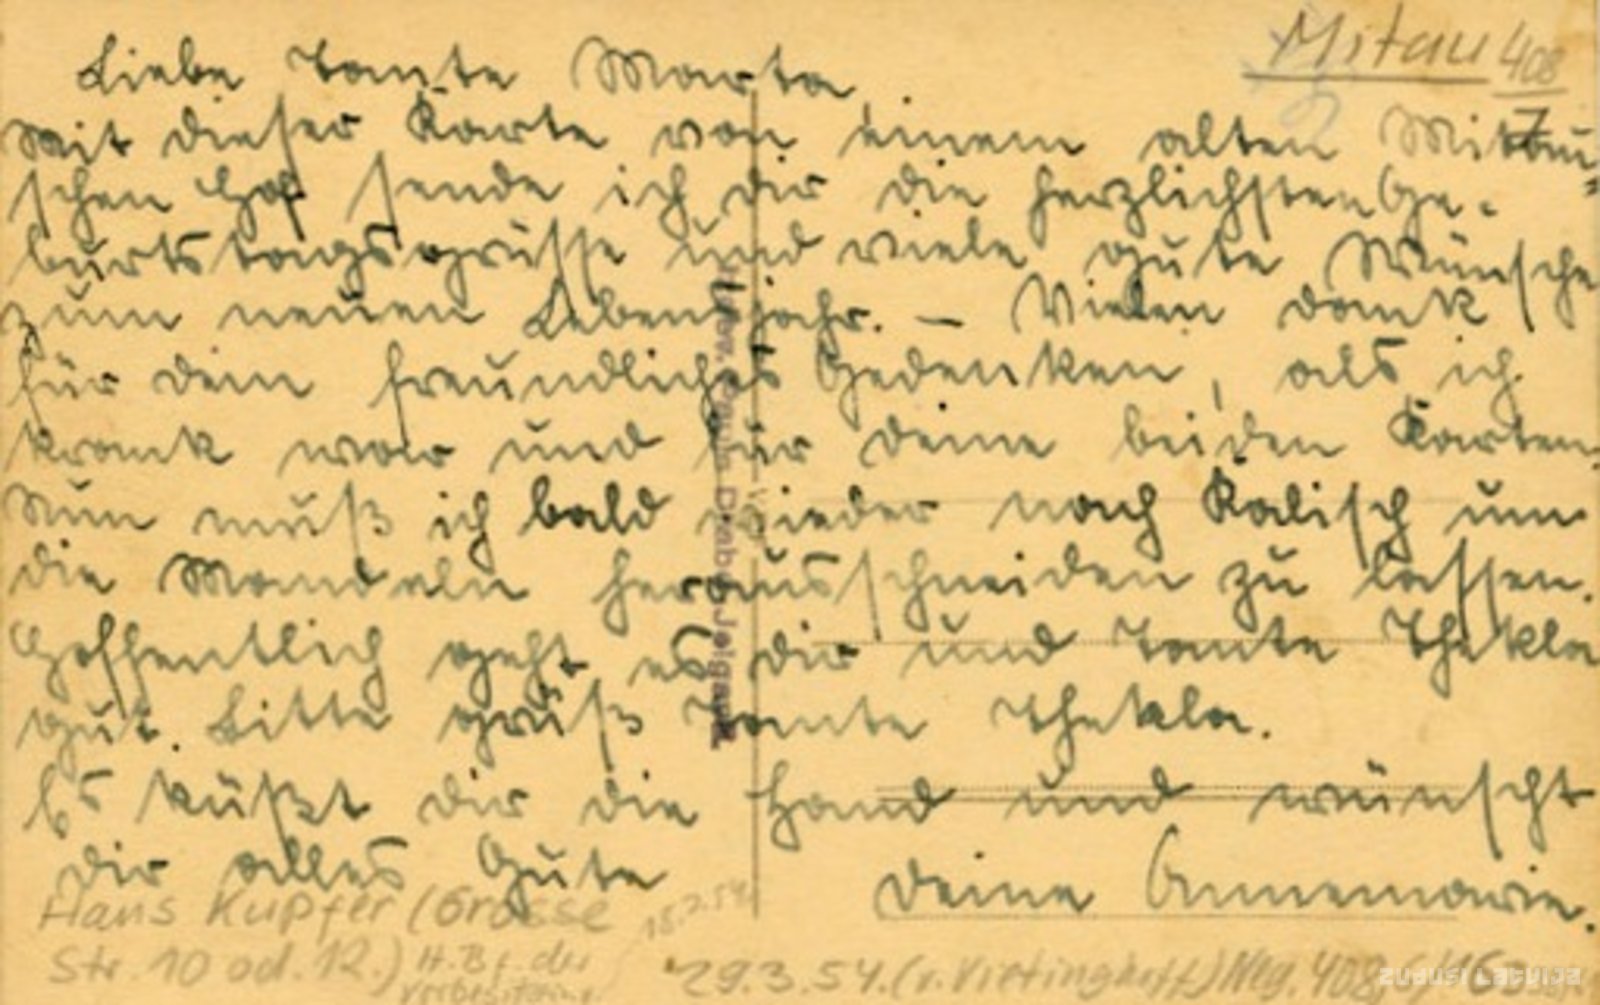 Mitau 408
7
Liebe Tante Marta,
Mit dieser Karte von einem alten Mitau=
schen Hof sende ich dir die herzlichsten Ge-
burtstagsgrüsse und viele gute Wünsche
zum neuen Lebensjahr. — Vielen dank
für dein freundliches Gedenken, als ich
krank war und für deine beiden Karten.
Nun muß ich bald wieder nach Kalisch um
die Mandeln herausschneiden zu lassen.
Hoffentlich geht es dir und Tante Thekla
gut. Bitte grüß Tante Thekla.
Es küßt dir die Hand und wünscht
dir alles Gute
deine Annemarie.
Hans Kupfer (Grosse
Str. 10 od. 12.) H.Bf. der
Vorbesitzung
18.2.54
29.3.54. (v. Vietinghoff) Neg. 408
Jelgavā
zudusi latvija